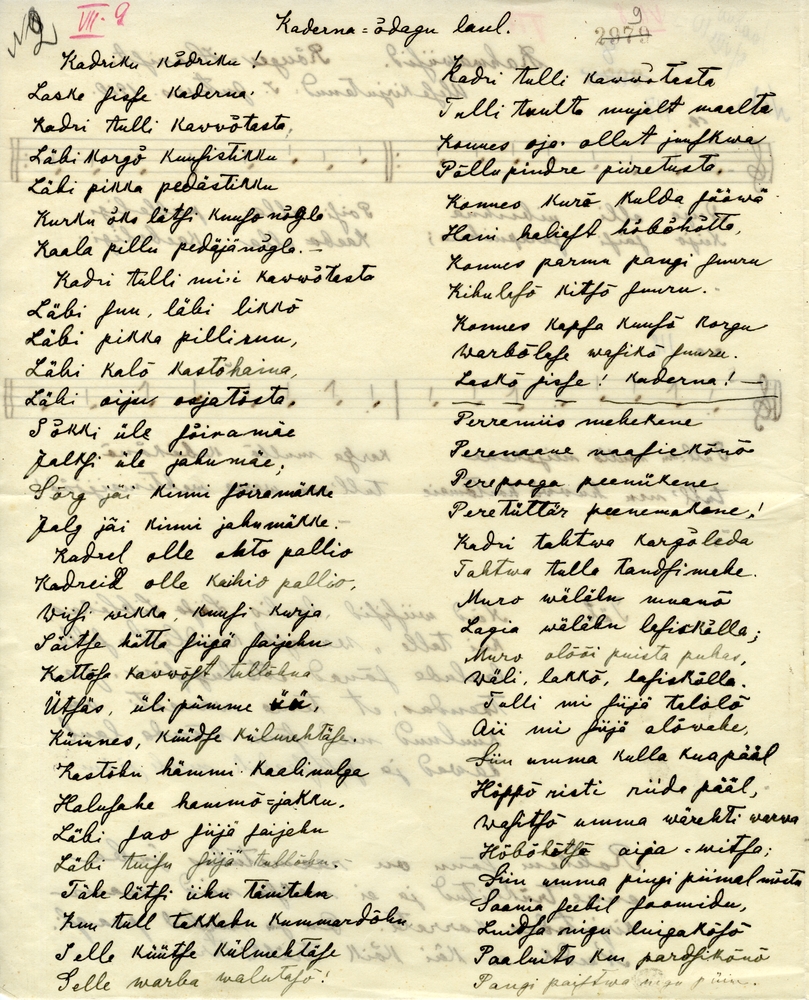 VII. 9
9
2979
Kaderna=õdagu laul.
Kadriku kõdriku!
Laske sisse kaderna.
Kadri tulli kavvõtasta,
Läbi korgõ kuusistikku
Läbi pikka pedästikku
Kurku õks lätsi kuusõnõglo
Kaala pillu pedäjänõgla. —
Kadri tulli mi:i kavvõtasta
Läbi suu, läbi likkõ
Läbi pikka pilliruu,
Läbi kalõ kastõhaina,
Läbi oiju, oajatõsta.
Sõkki üle sõiramäe
Jalksi üle jahumäe,
Sõrg jäi kinni sõiramäkke
Jalg jäi kinni jahumäkke.
Kadrel olle ohto pallio
Kadreil olle kaihio pallio,
Viisi vikka, kuusi kurja
Säitse hätta siijä saijehn
Kattõsa kavvõst tullõhna
Ütsäs, üli pümme üü,
Kümnes, küüdse külmehtäse.
Kastõhn hämmi kaalinulga
Halusahe hammõ=jakku.
Läbi sao siijä saijehn
Läbi tuisu siijä tullõhn.
Tähe lätsi iihn täniten
Kuu tull takkahn kummardõhn
Selle küütse külmehtäse
Selle warba walutasõ!
Kadri tulli kavvõtasta
Tulli tuulta mujalt maalta
Konnes oja ollut juuskwa
Põllupindre piiretusta.
Konnes kurõ kulda sööwä
Hani haliast hõbõhõtta,
Konnes parmu pangi suuru
Kihulesõ kitsõ suuru.
Konnes kapsa kuusõ korgu
Warbõlase wasikõ suuru.
Laskõ sisse! kaderna! —
Perremiis mehekene
Perenaane naasiekõnõ
Perepoega peenükene
Peretüttär peenemakene,!
Kadri tahtwa kargõleda
Tahtwa tulla tandsimahe.
Muro wälähn muanõ
Lagia wälähn lasiskõlla;
Muro olõõi puista puhas,
Wäli, lakkõ, lasiskõlla.
Tulli mi siijä talõlõ
Aii mi siijä alõwahe,
Siin umma kulla kuapääl
Hõppõ risti riida pääl,
Wasitsõ umma wärehti warwa
Hõbõhõtsõ aija=witsa;
Siin umma pingi piimal mõstu
Saania seebil soomidu,
Luidsa nigu luigakõsõ
Paaluits kui pardsikõnõ
Pangi paistwa nigu püin.